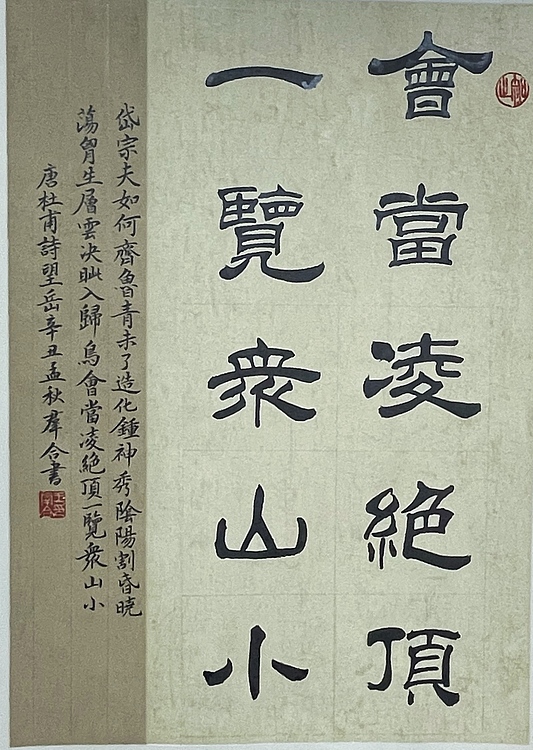 會當凌絕頂
一覽衆山小
岱宗夫如何齊魯青未了造化鍾神秀陰陽割昏曉
蕩胷生層雲決眦入歸鳥會當凌絕頂一覽衆山小
唐杜甫詩望岳辛丑孟秋羣合書